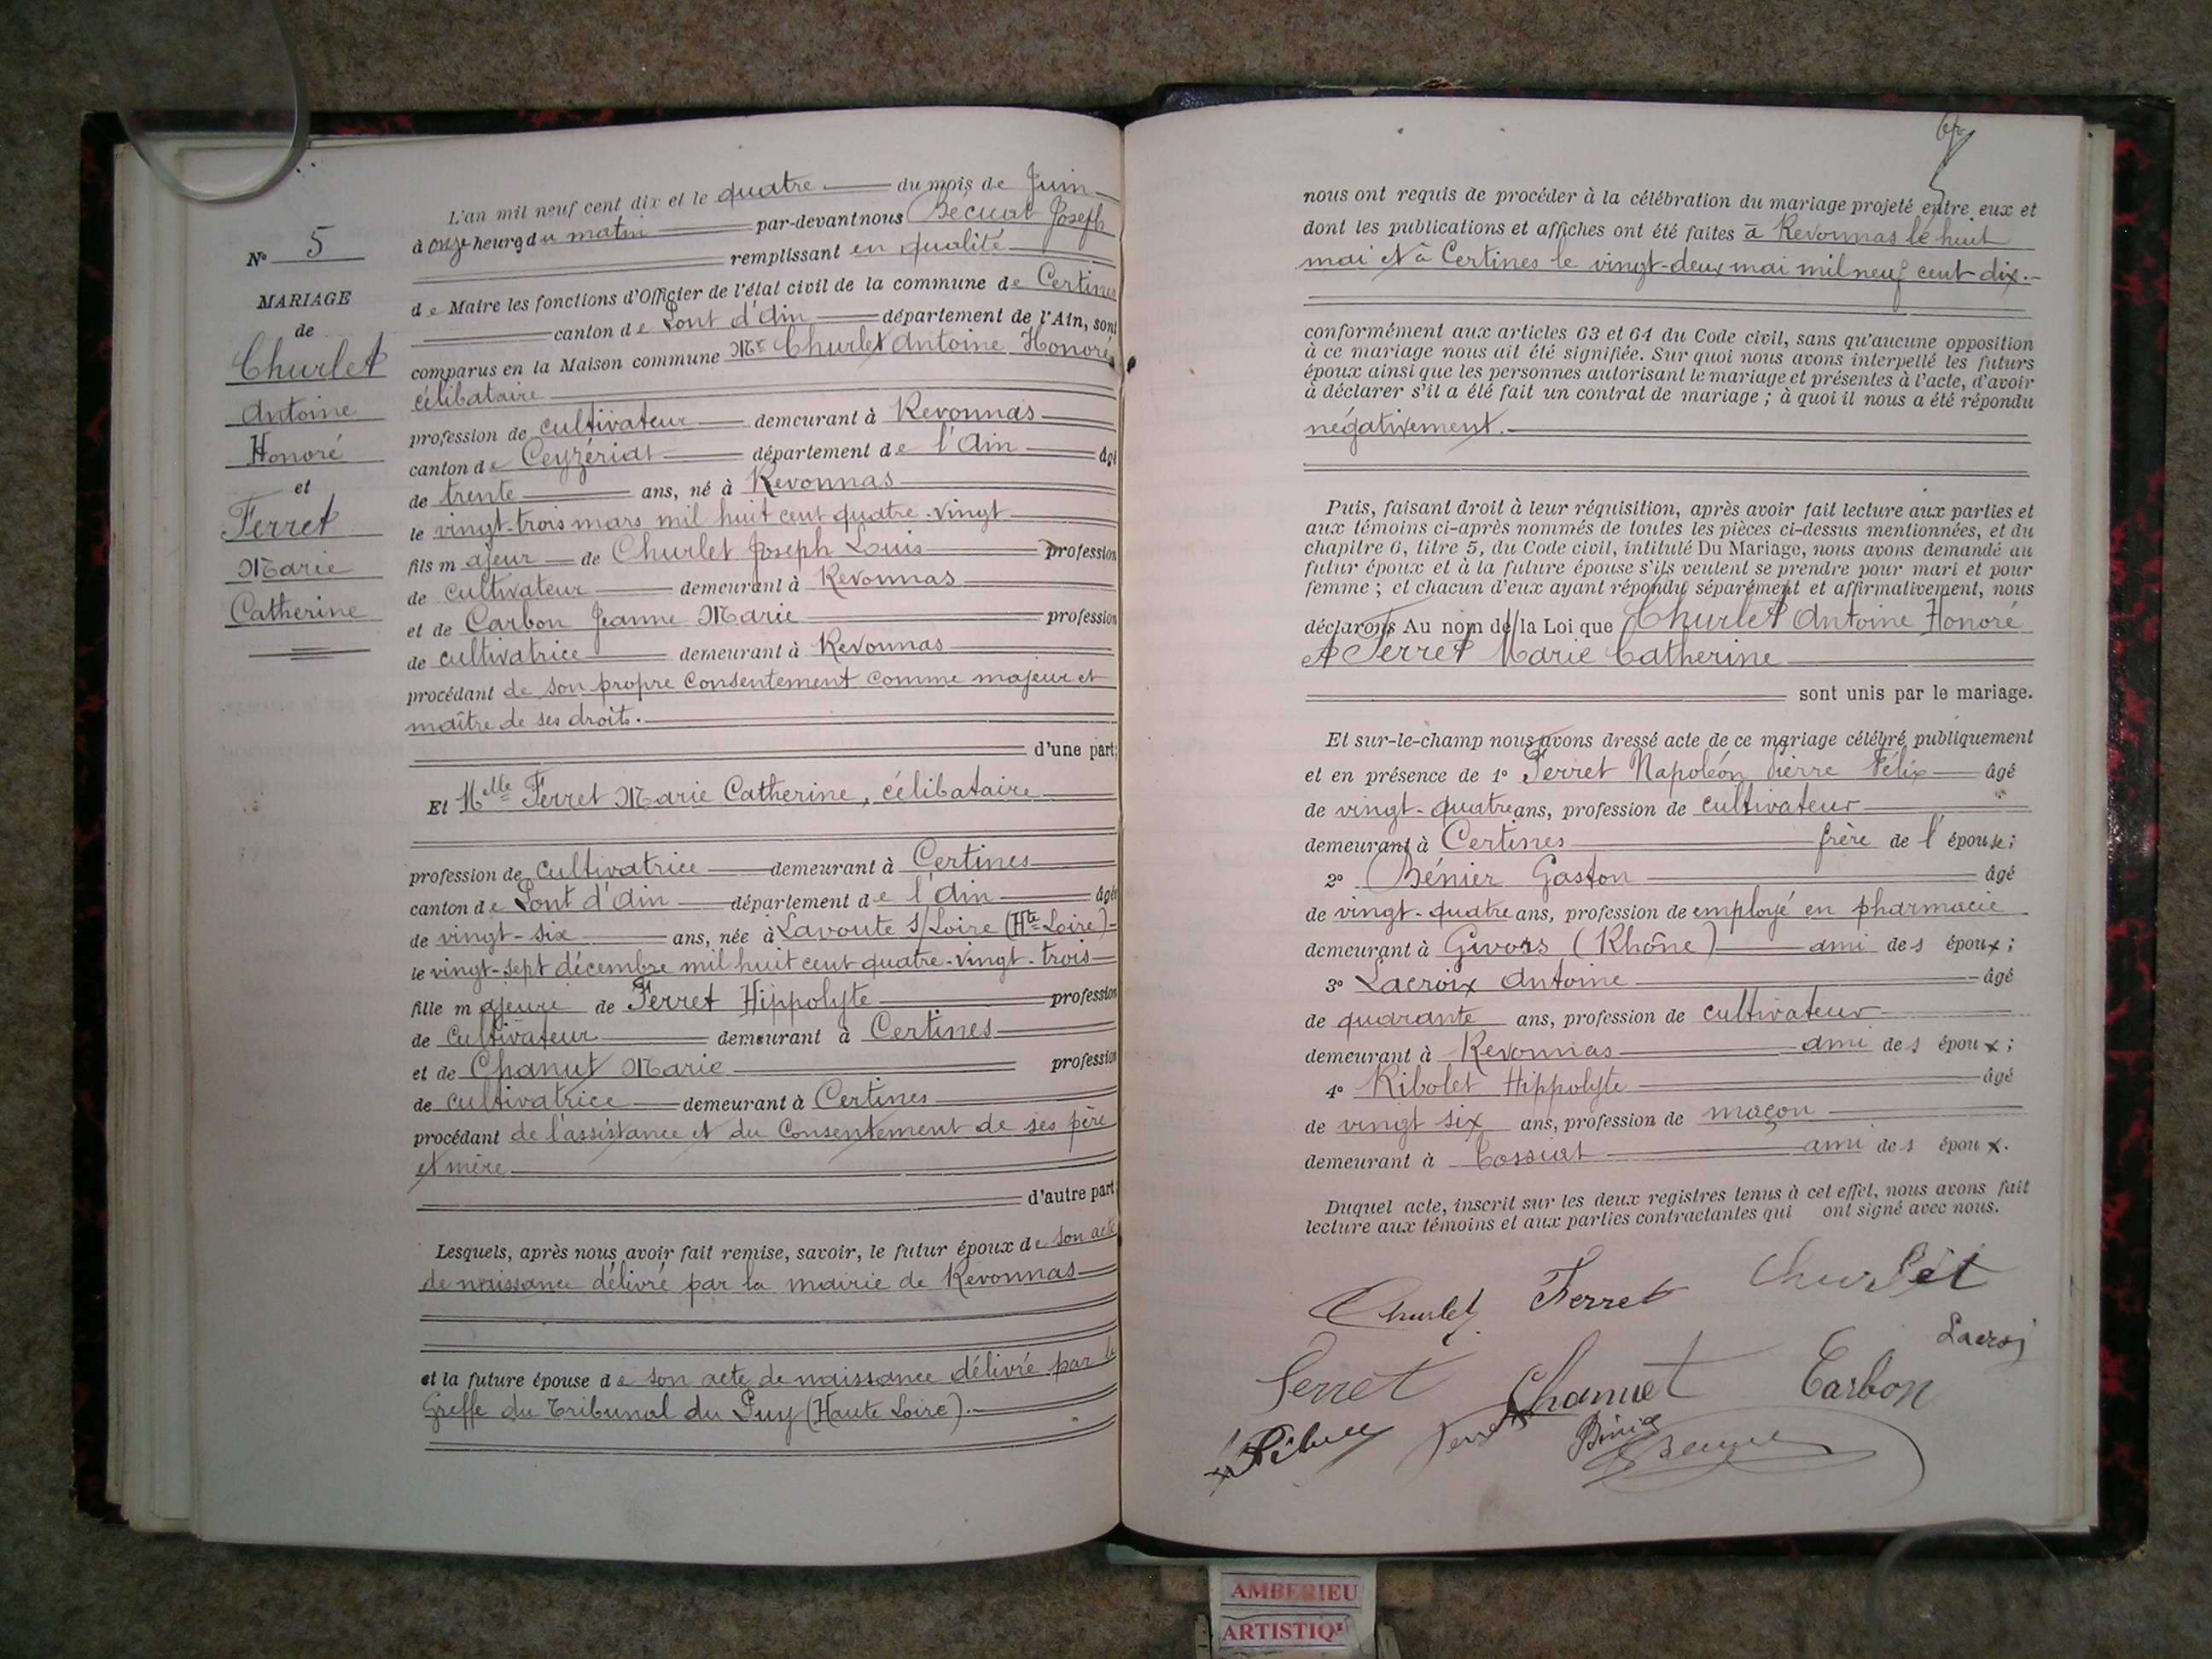 L'an mil neuf cent dix et le quatre du mois de Juin
à onze heures du matin par-devant nous Bécuat Joseph
remplissant en qualité
de Maire les fonctions d'Officier de l'état civil de la commune de Certines
canton de Pont d'Ain département de l'Ain, sont
comparus en la Maison commune Mr Churlet Antoine Honoré,
célibataire
profession de cultivateur demeurant à Revonnas
canton de Ceyzériat département de l'Ain âgé
de trente ans, né à Revonnas
le vingt-trois mars mil huit cent quatre-vingt
fils majeur de Churlet Joseph Louis profession
de cultivateur demeurant à Revonnas
et de Carbon Jeanne Marie profession
de cultivatrice demeurant à Revonnas
procédant de son propre consentement comme majeur et
maître de ses droits.
d'une part;
Et Melle Ferret Marie Catherine, célibataire
profession de cultivatrice demeurant à Certines
canton de Pont d'Ain département de l'Ain âgée
de vingt-six ans, née à Lavoute s/Loire (Hte Loire)
le vingt-sept décembre mil huit cent quatre-vingt-trois
fille majeure de Ferret Hippolyte profession
de cultivateur demeurant à Certines
et de Chanut Marie profession
de cultivatrice demeurant à Certines
procédant de l'assistance et du consentement de ses père
et mère
d'autre part;
Lesquels, après nous avoir fait remise, savoir, le futur époux de son acte
de naissance délivré par la mairie de Revonnas
et la future épouse de son acte de naissance délivré par le
Greffe du Tribunal du Puy (Haute Loire).
N° 5
MARIAGE
de
Churlet
Antoine
Honoré
et
Ferret
Marie
Catherine
nous ont requis de procéder à la célébration du mariage projeté entre eux et
dont les publications et affiches ont été faites à Revonnas le huit
mai et à Certines le vingt-deux mai mil neuf cent dix.
conformément aux articles 63 et 64 du Code civil, sans qu'aucune opposition
à ce mariage nous ait été signifiée. Sur quoi nous avons interpellé les futurs
époux ainsi que les personnes autorisant le mariage et présentes à l'acte, d'avoir
à déclarer s'il a été fait un contrat de mariage ; à quoi il nous a été répondu
négativement.
Puis, faisant droit à leur réquisition, après avoir fait lecture aux parties et
aux témoins ci-après nommés de toutes les pièces ci-dessus mentionnées, et du
chapitre 6, titre 5, du Code civil, intitulé Du Mariage, nous avons demandé au
futur époux et à la future épouse s'ils veulent se prendre pour mari et pour
femme ; et chacun d'eux ayant répondu séparément et affirmativement, nous
déclarons Au nom de la Loi que Churlet Antoine Honoré
et Ferret Marie Catherine
sont unis par le mariage.
Et sur-le-champ nous avons dressé acte de ce mariage célébré publiquement
et en présence de 1° Ferret Napoléon Pierre Félix âgé
de vingt-quatre ans, profession de cultivateur
demeurant à Certines frère de l'épouse;
2° Bénier Gaston âgé
de vingt-quatre ans, profession de employé en pharmacie
demeurant à Givors (Rhône) ami des époux;
3° Lacroix Antoine âgé
de quarante ans, profession de cultivateur
demeurant à Revonnas ami des époux;
4° Ribolet Hippolyte âgé
de vingt six ans, profession de maçon
demeurant à Tossiat ami des époux.
Duquel acte, inscrit sur les deux registres tenus à cet effet, nous avons fait
lecture aux témoins et aux parties contractantes qui ont signé avec nous.
Churlet Ferret Churlet
Lacroi
Ferret Chanuet Carbon
Ferret
AMBERIEU
ARTISTIQ